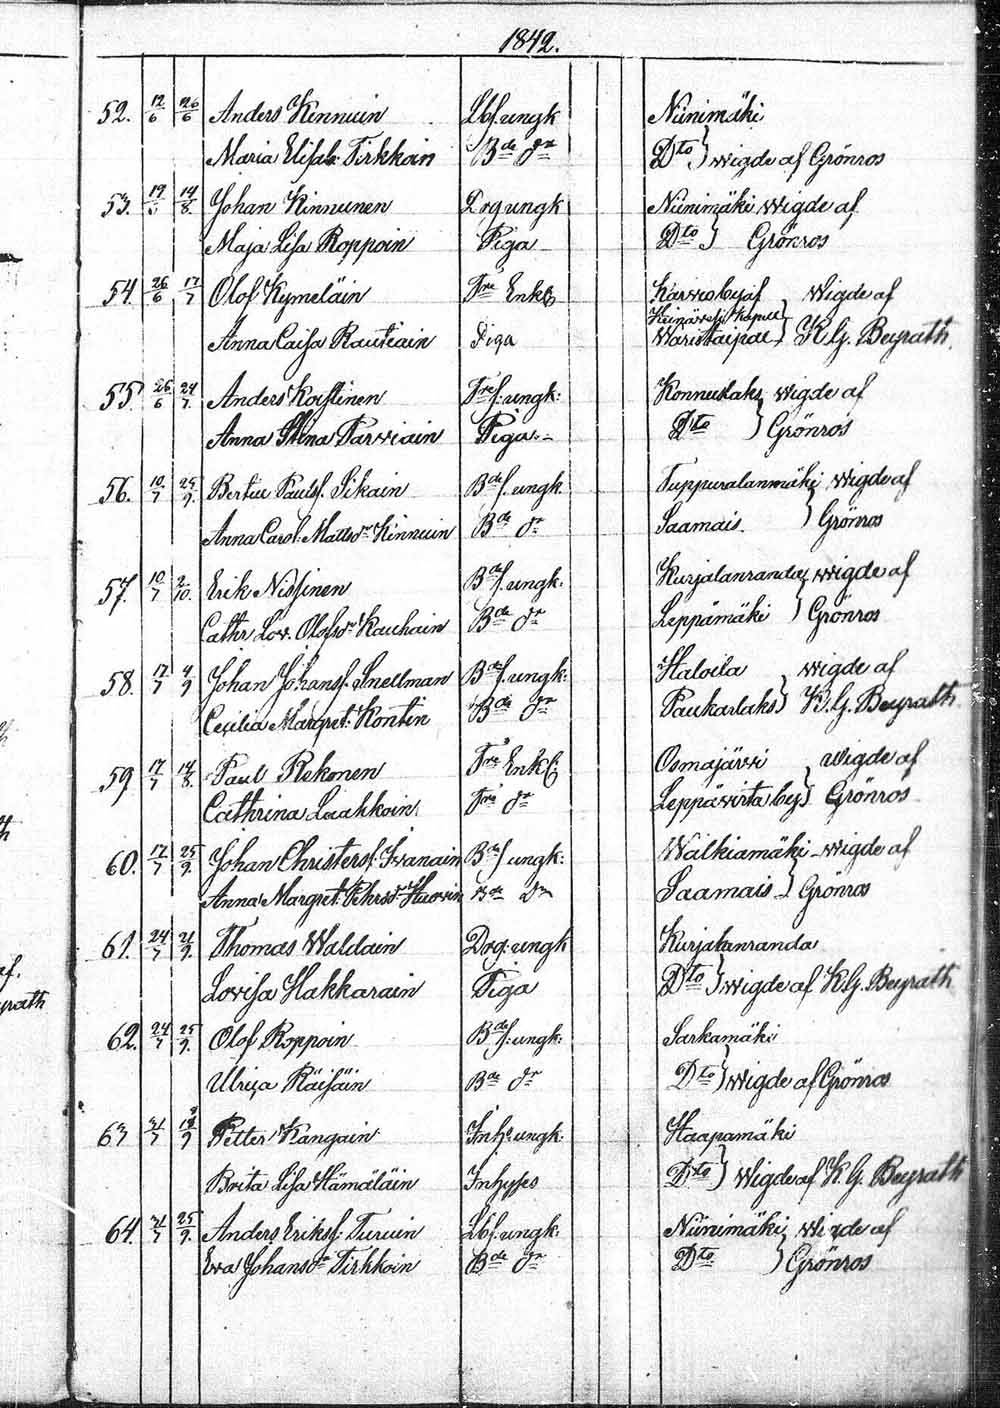 1842.
52. 12/6 26/6 Anders Kinnuin Lbf. ungk Niinimäki
Maria Elisab: Tirkkoin Bde dr Dto } wigde af Grönros
53. 19/ 14/8. Johan Kinnunen Drg ungk Niinimäki wigde af
Maja Lisa Roppoin Piga Dto } Grönros
54 26/6 17/7 Olof Kymeläin Tre Enkl Karvio by af } Wigde af
Heinävesi Kapell
Anna Caisa Rautiain Piga Waristaipal } K. G. Beyrath.
55. 26/6 24/7. Anders Koistinen Tre f: ungk: Konnuslaks } wigde af
Anna Stina Parviain Piga. Dto } Grönros
56. 10/7 25/9. Bertil Paulsf. Sikain Bde f. ungk Tuppuralanmäki } wigde af
Anna Carol: Mattsdr Kinnuin Bde dr Saamais. } Grönros
57. 10/7 2/10. Erik Nissinen Bde f. ungk: Kurjalanranda } wigde af
Cathr Lov. Olofsdr Kauhain Bde dr Leppämäki } Grönros
58. 17/7 4/9 Johan Johansf. Snellman Bde f. ungk: Haloila } wigde af
Cecilia Margret: Kontin Bde dr Paukarlaks } K. G. Beyrath.
59 17/7 14/8. Paul Rekonen Tre Enkl Osmajärwi } wigde af
Cathrina Laahkoin Tre dr Leppävirta by } Grönros
60. 17/7 25/9. Johan Christersf: Ivanain Bde f ungk: Wälkiamäki } wigde af
Anna Margret: Pehrsdr Huovin Bde Dr Saamais } Grönros
61. 24/7 21/9. Thomas Waldain Drg: ungk Kurjalanranda
Lovisa Hakkarain Piga Dto } wigde af K. G. Beyrath
62. 24/7 25/9. Olof Roppoin Bde f: ungk: Sarkamäki
Ulrica Räisäin Bde dr Dto } wigde af Grönros
63 31/7 /9 Petter Kangain Inhs ungk: Haapamäki
Brita Lisa Hämäläin Inhyses Dto } Wigde af K. G. Beyrath
64. 31/7 25/9. Anders Eriksf: Turuin Lbf. ungk: Niinimäki } wigde af
Eva Johansdr Tirkkoin Bde dr Dto } Grönros
af.
yrath